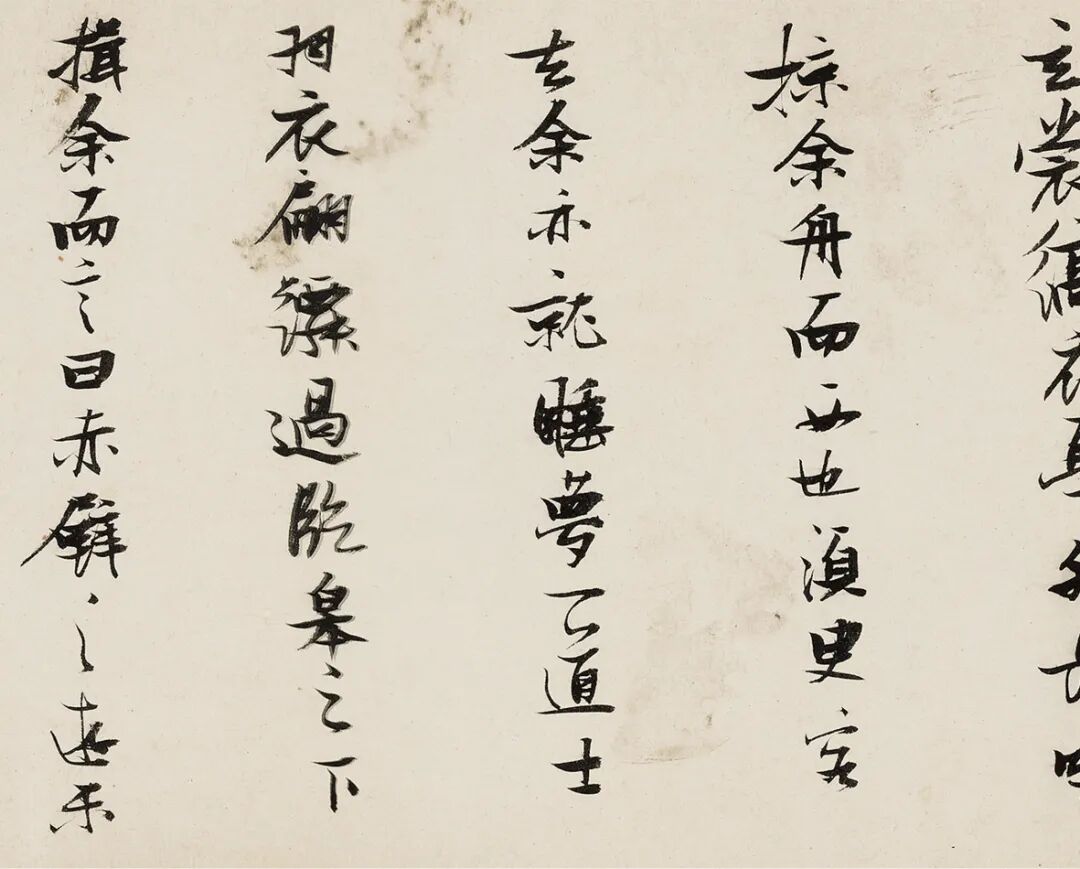 玄裳縞衣戛然長鳴
掠余舟而西也須臾客
去余亦就睡夢二道士
羽衣翩躚過臨皋之下
揖余而言曰赤壁之遊樂